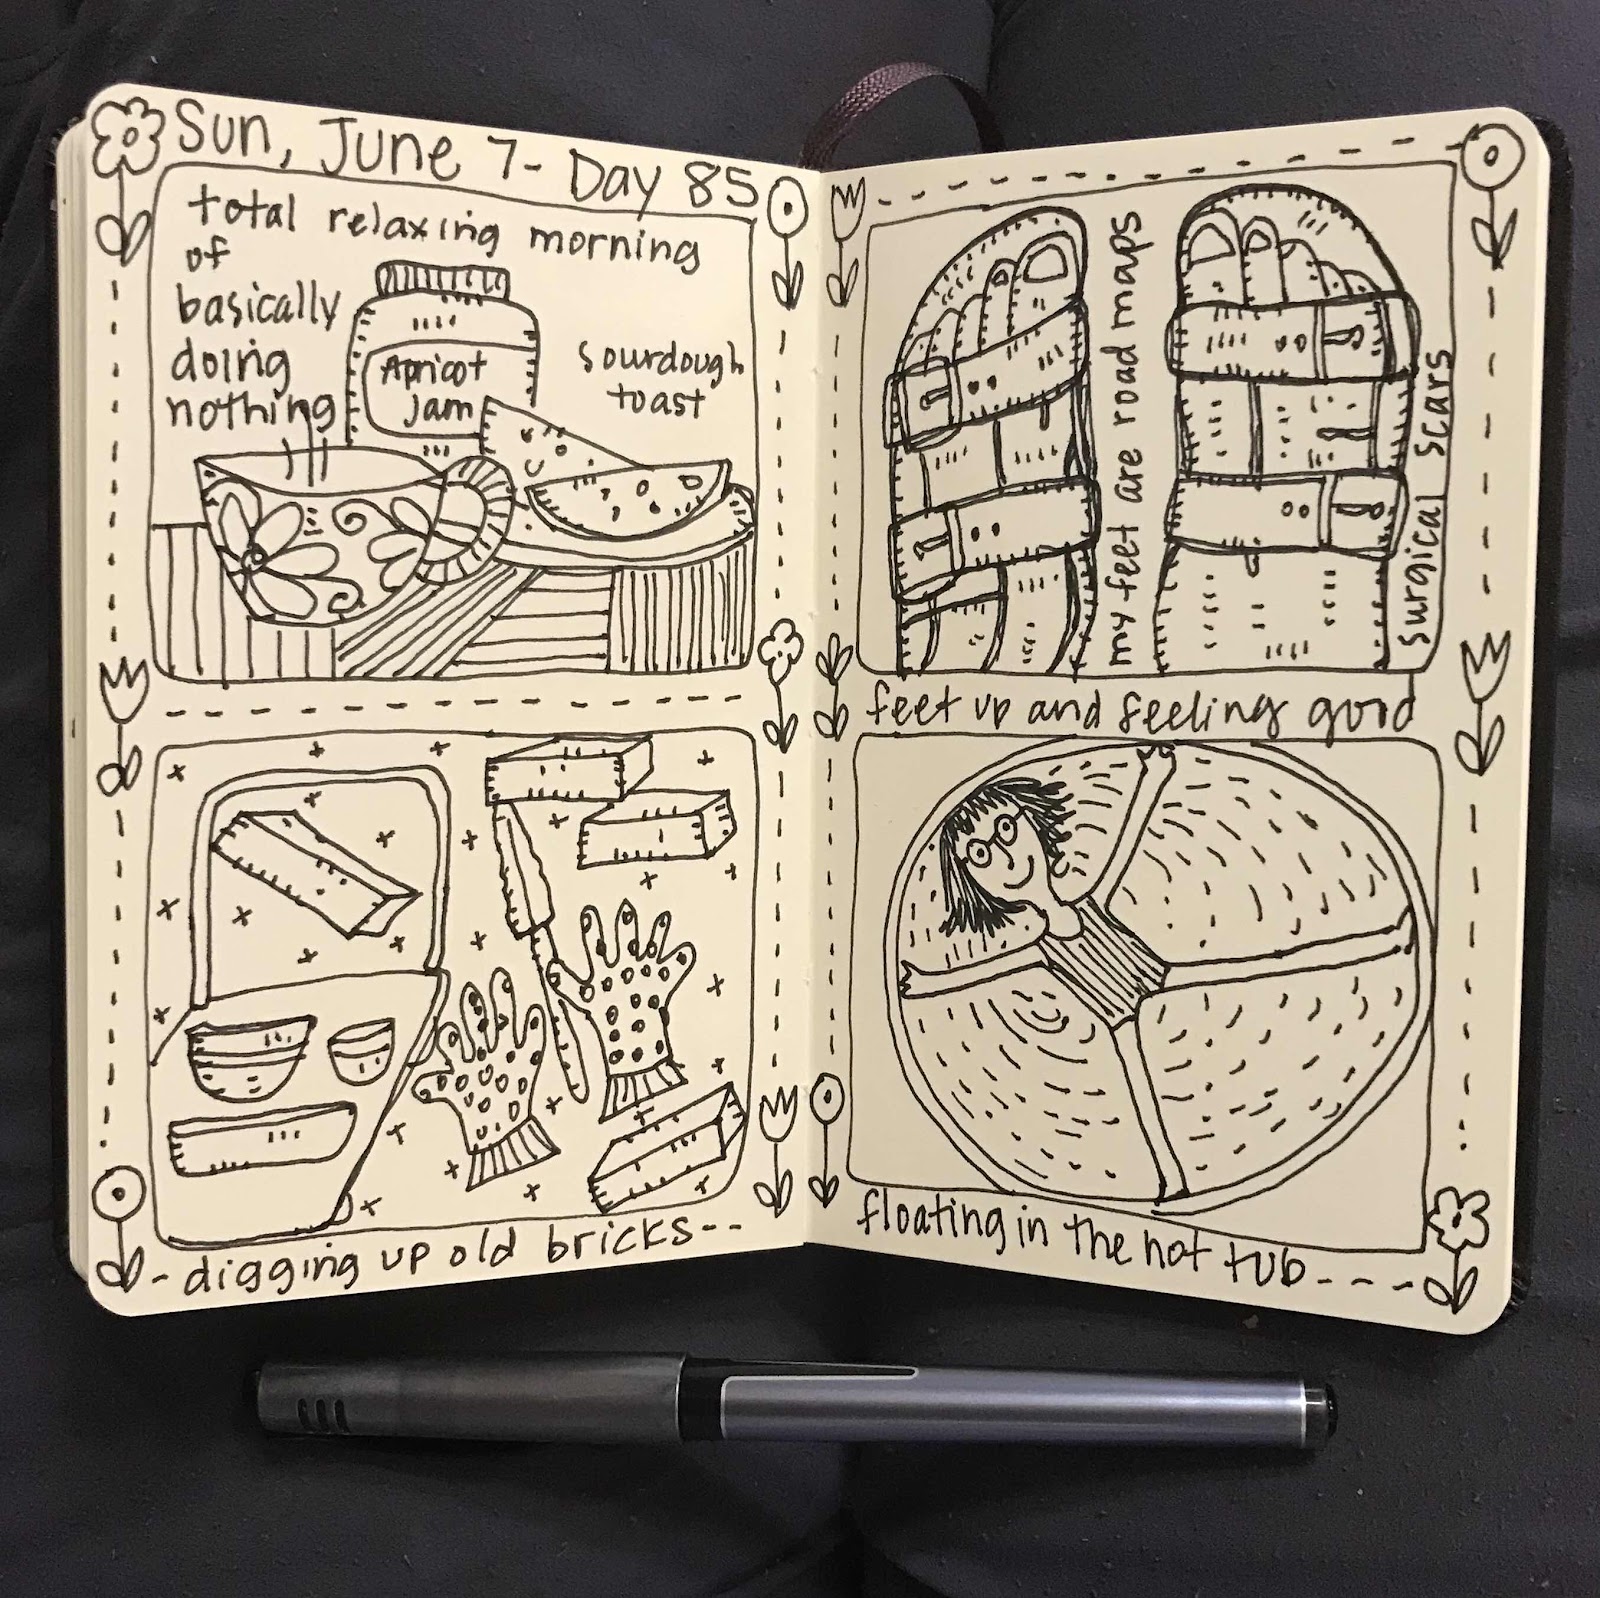 Sun, June 7 - Day 85
total relaxing morning
of
basically
doing
nothing
Apricot
Jam
sourdough
toast
digging up old bricks
my feet are road maps
surgical scars
feet up and feeling good
floating in the hot tub